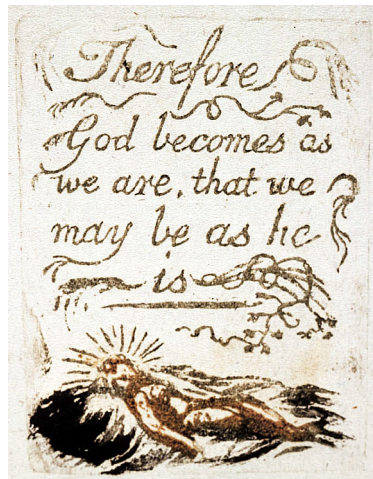 Therefore
God becomes as
we are, that we
may be as he
is